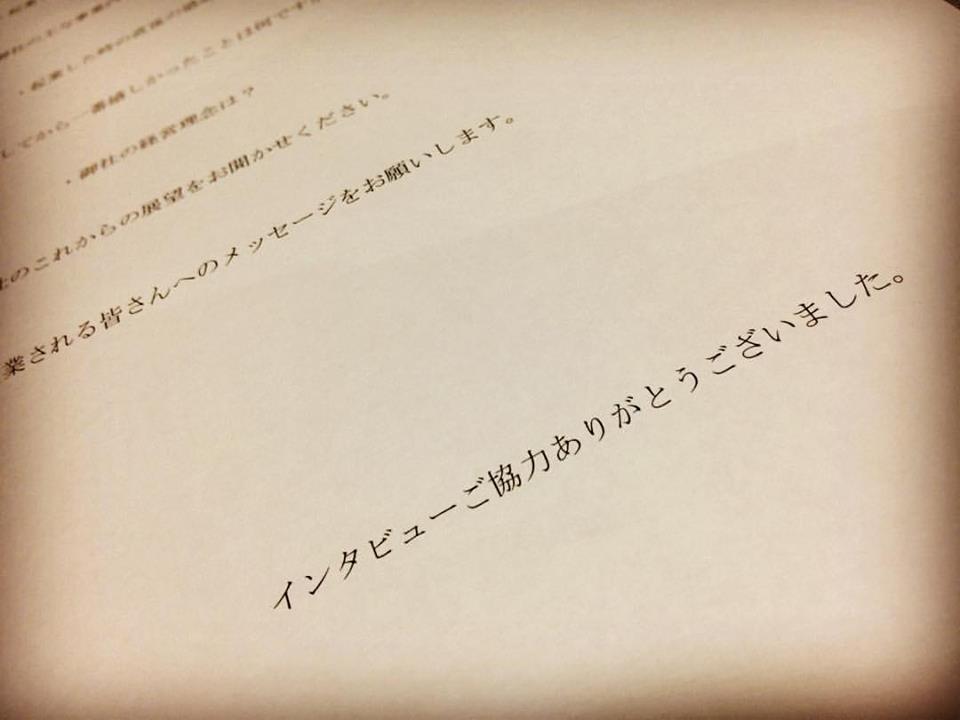 ・起業した時の最後の
してから一番嬉しかったことは何です
・御社の経営理念は？
社のこれからの展望をお聞かせください。
業される皆さんへのメッセージをお願いします。
インタビューご協力ありがとうございました。